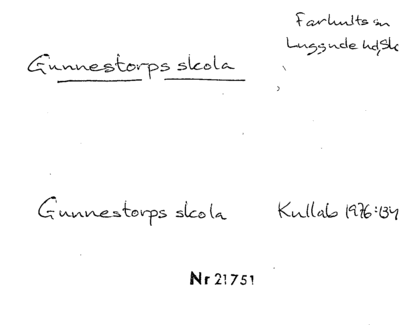 Farhults sn
Luggude hd, Sk
Gunnestorps skola
Gunnestorps skola Kullab 1976:134
Nr 21751